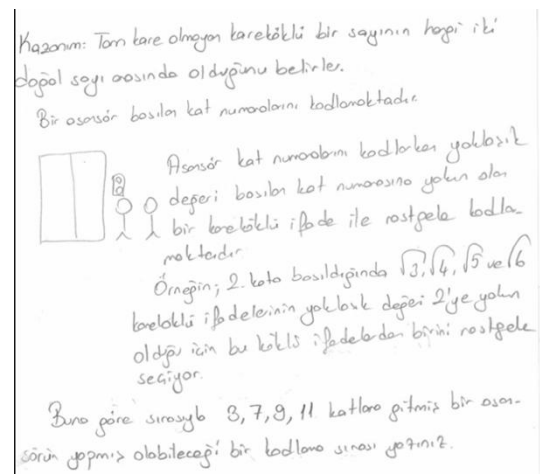 Kazanım: Tam kare olmayan kareköklü bir sayının hangi iki
doğal sayı arasında olduğunu belirler.
Bir asansör basılan kat numaralarını kodlamaktadır.
Asansör kat numaralarını kodlarken yaklaşık
değeri basılan kat numarasına yakın olan
bir kareköklü ifade ile rastgele kodla-
maktadır.
Örneğin; 2. kata basıldığında √3, √4, √5 ve √6
kareköklü ifadelerinin yaklaşık değeri 2'ye yakın
olduğu için bu köklü ifadelerden birini rastgele
seçiyor.
Buna göre sırasıyla 3, 7, 9, 11 katlara gitmiş bir asan-
sörün yapmış olabileceği bir kodlama sırası yazınız.